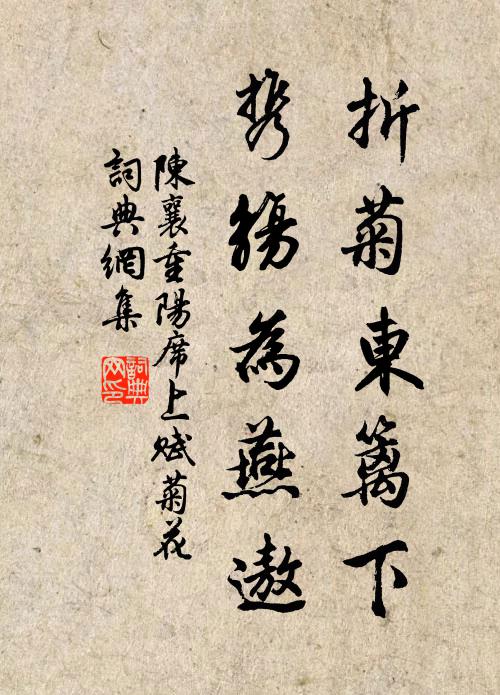 折菊東籬下
携觴為燕遨
陳襄重陽席上赋菊花
詞典網集
詞典網印